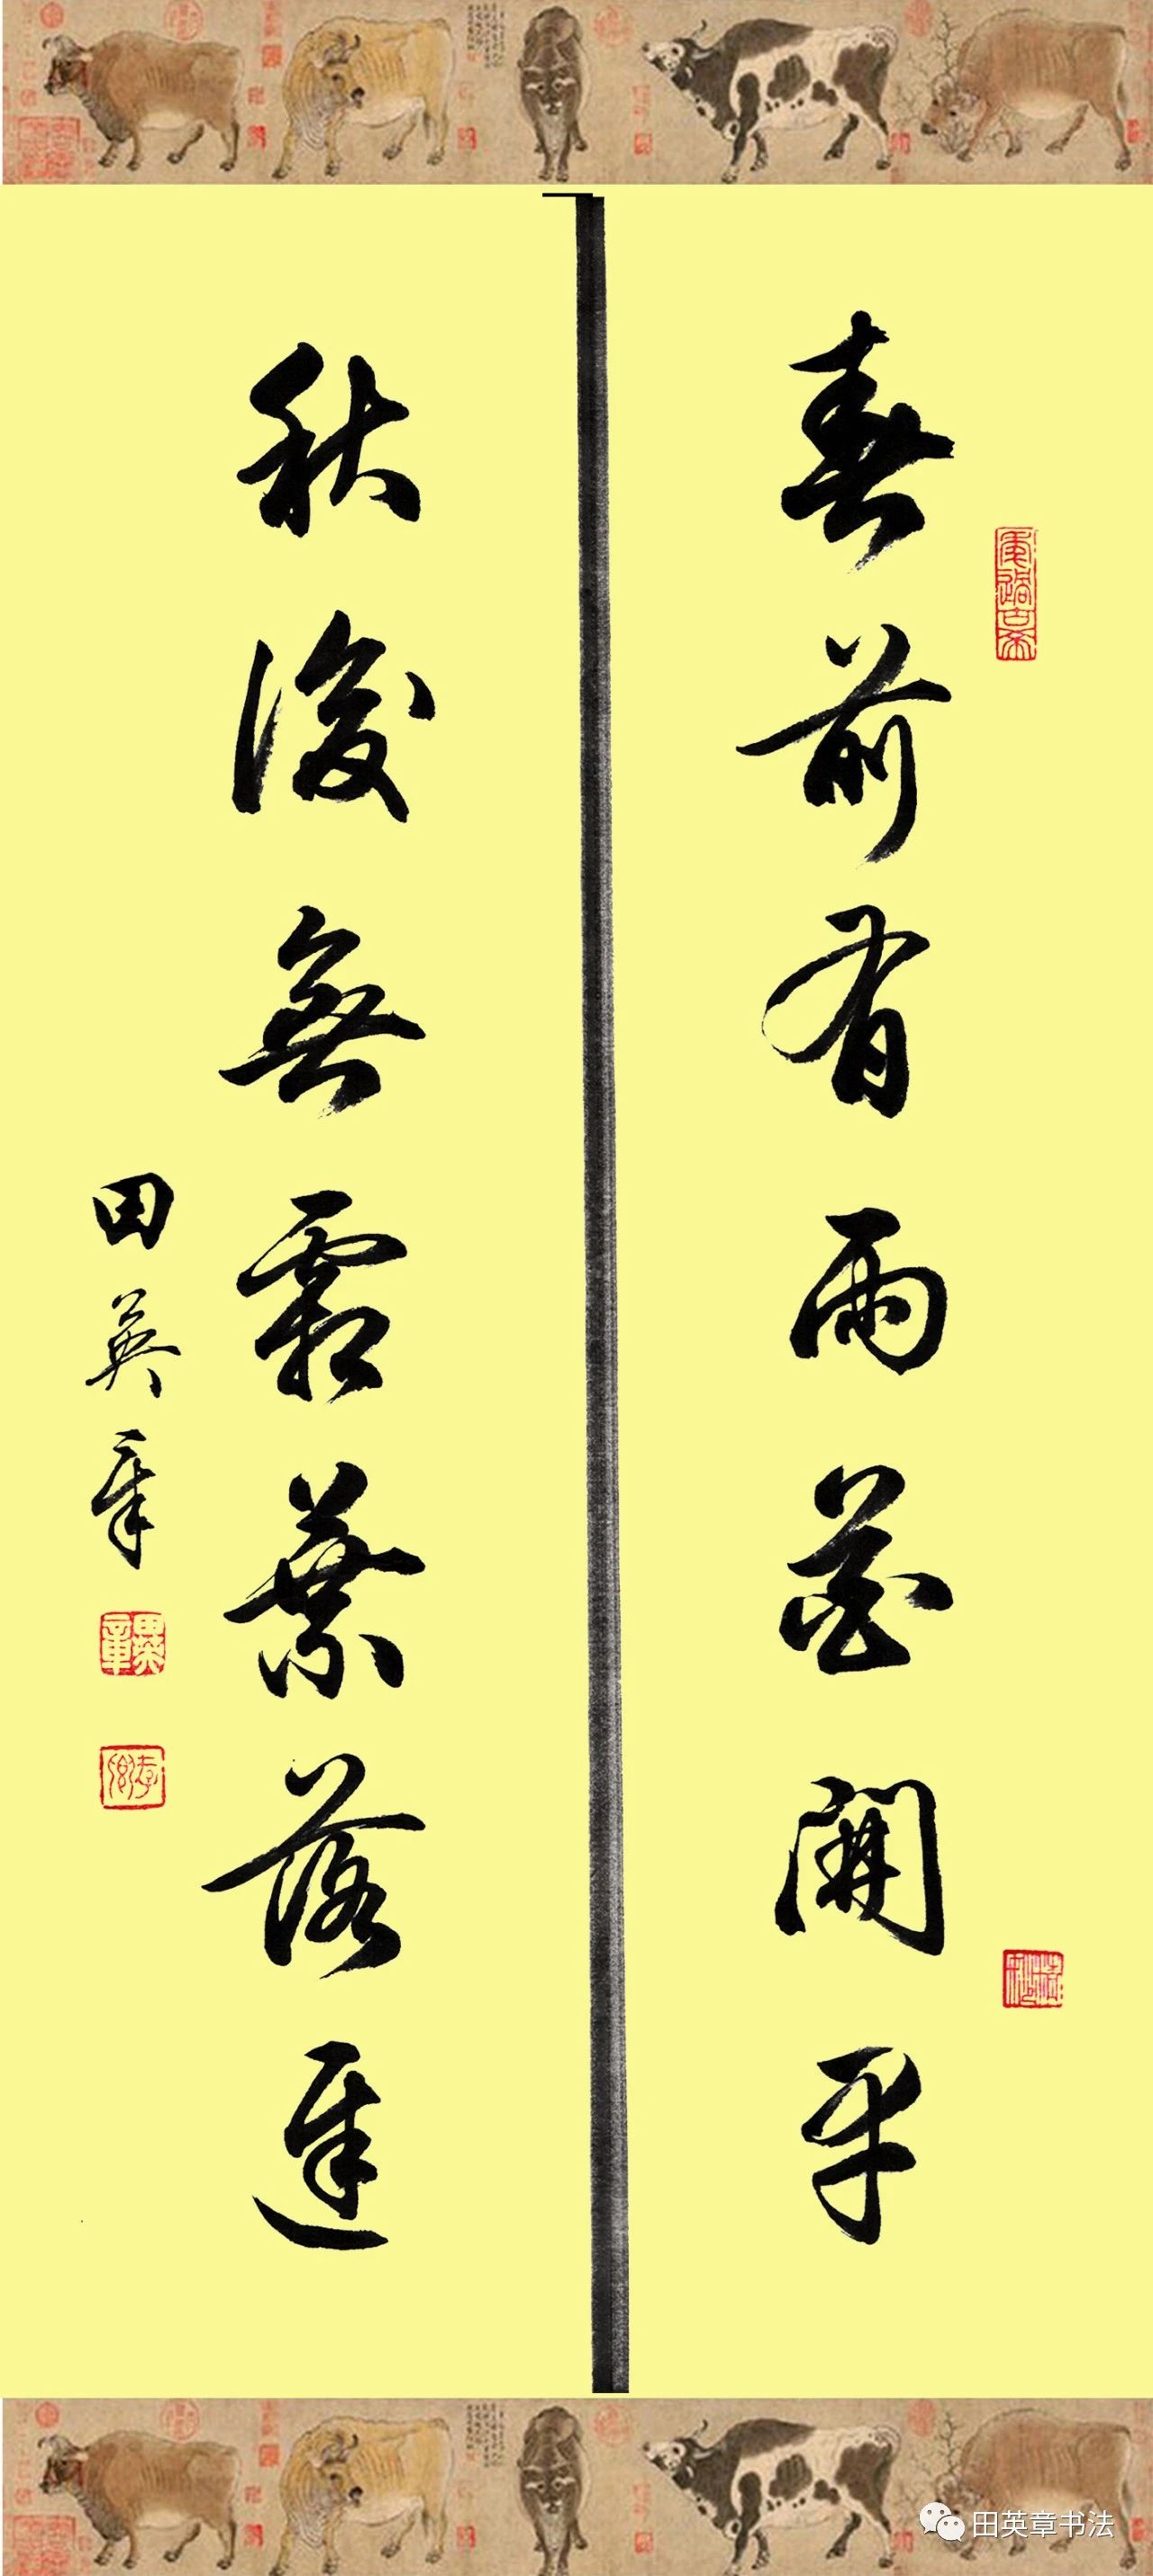 春前有雨花開早
秋後無霜葉落遲
田英章
田英章
田英章书法